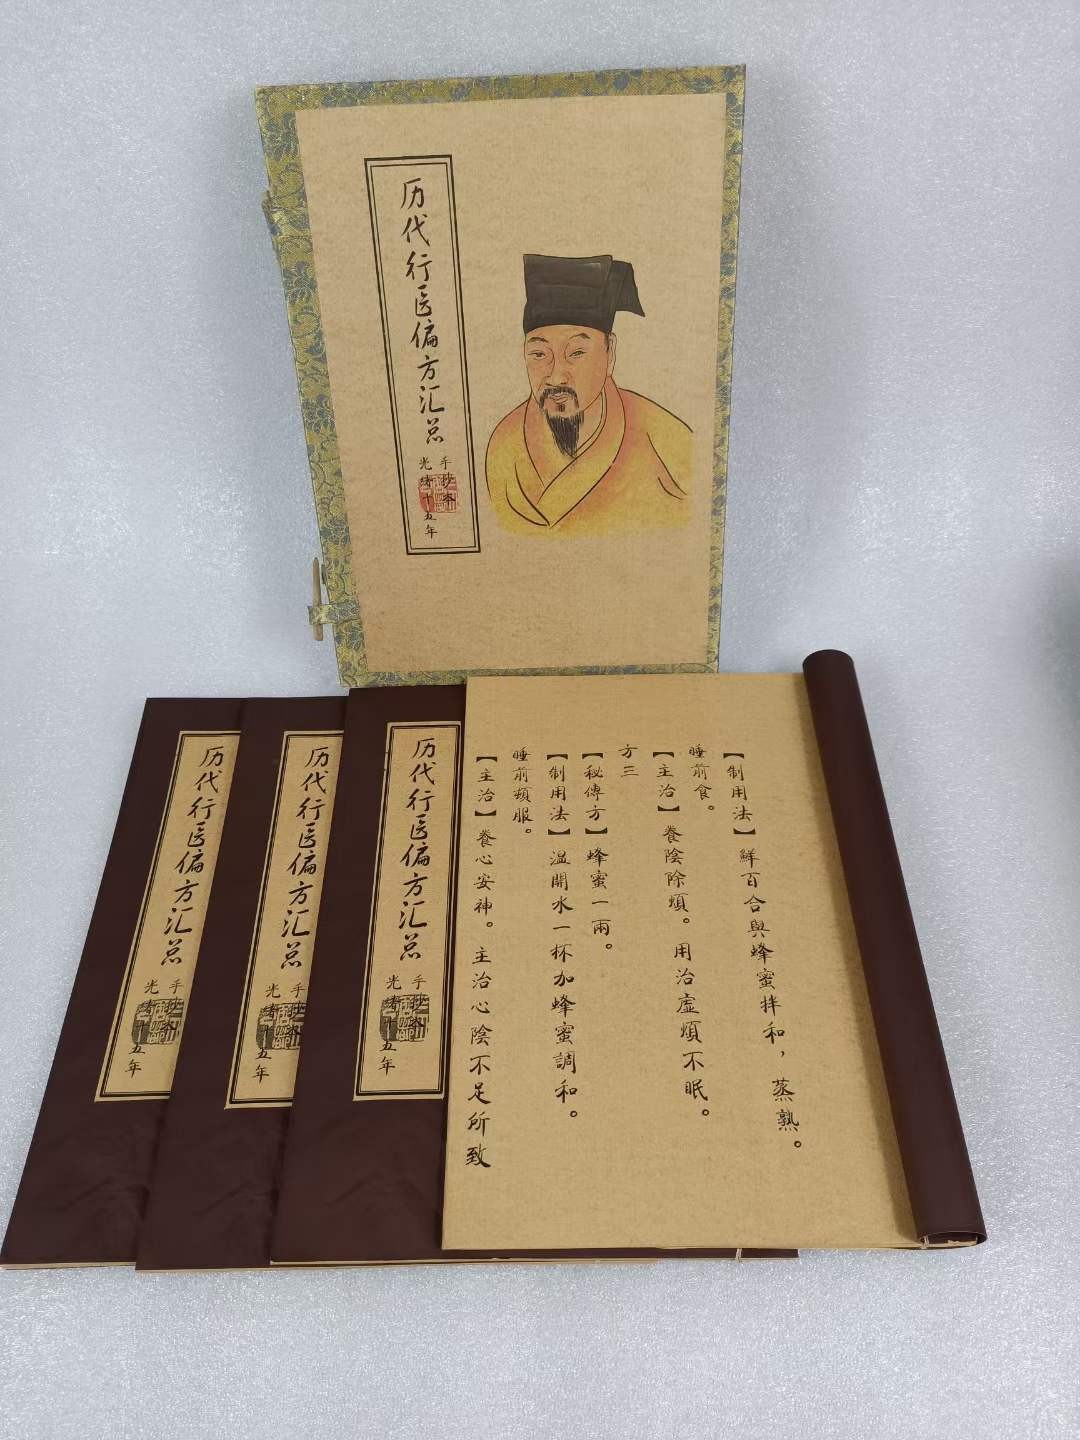 历代行医偏方汇总
手抄本
光绪十五年
历代行医偏方汇总
手抄本
光绪十五年
历代行医偏方汇总
手抄本
光绪十五年
历代行医偏方汇总
手抄本
光绪十五年
【制用法】鮮百合與蜂蜜拌和，蒸熟。
睡前食。
【主治】養陰除煩。用治虛煩不眠。
方三
【秘傳方】蜂蜜一兩。
【制用法】溫開水一杯加蜂蜜調和。
睡前頓服。
【主治】養心安神。主治心陰不足所致